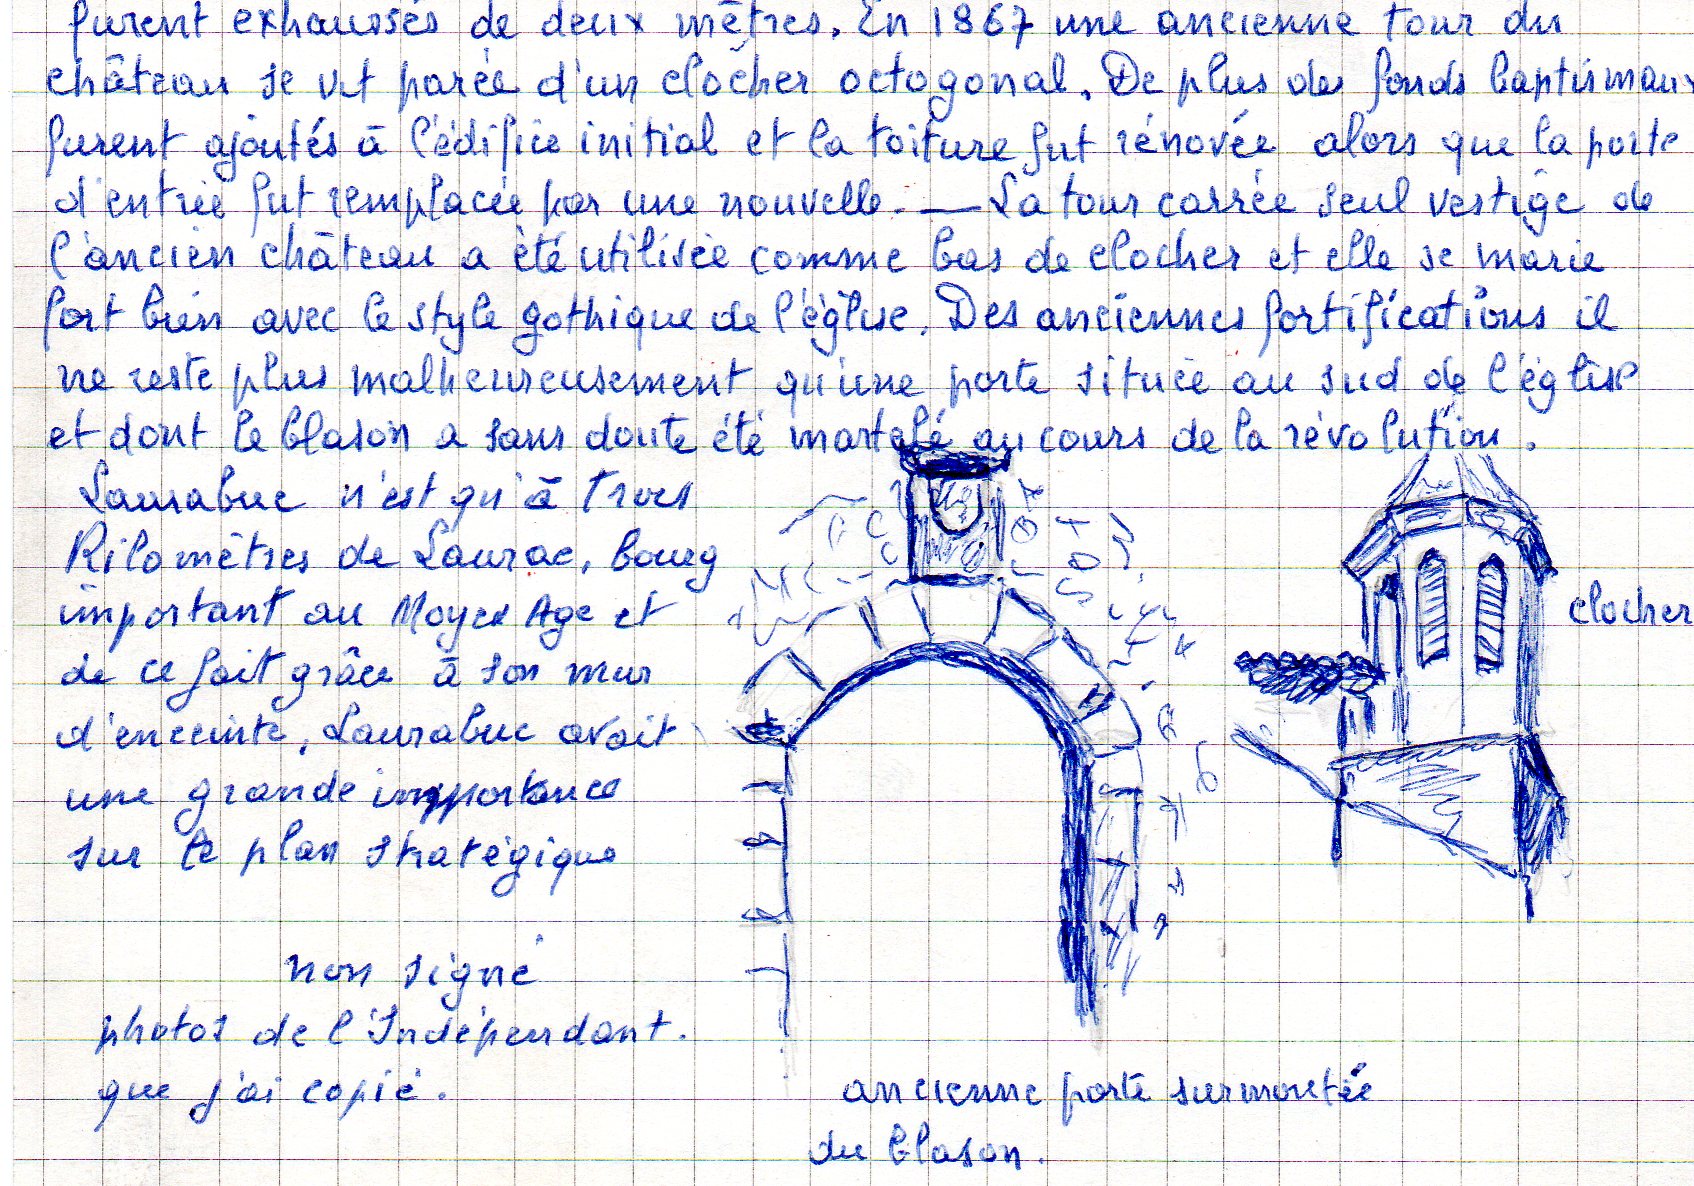 furent exhaussés de deux mètres. En 1867 une ancienne tour du
château se vit parée d'un clocher octogonal. De plus des fonds baptismaux
furent ajoutés à l'édifice initial et la toiture fut rénovée alors que la porte
d'entrée fut remplacée par une nouvelle. — La tour carrée seul vestige de
l'ancien château a été utilisée comme bas de clocher et elle se marie
fort bien avec le style gothique de l'église. Des anciennes fortifications il
ne reste plus malheureusement qu'une porte située au sud de l'église
et dont le blason a sans doute été martelé au cours de la révolution.
Laurabuc n'est qu'à trois
Kilomètres de Laurac, bourg
important au Moyen Age et
de ce fait grâce à son mur
d'enceinte, Laurabuc avait
une grande importance
sur le plan stratégique
clocher
non signé
photos de l'Indépendant.
que j'ai copié.
ancienne porte surmontée
du blason.